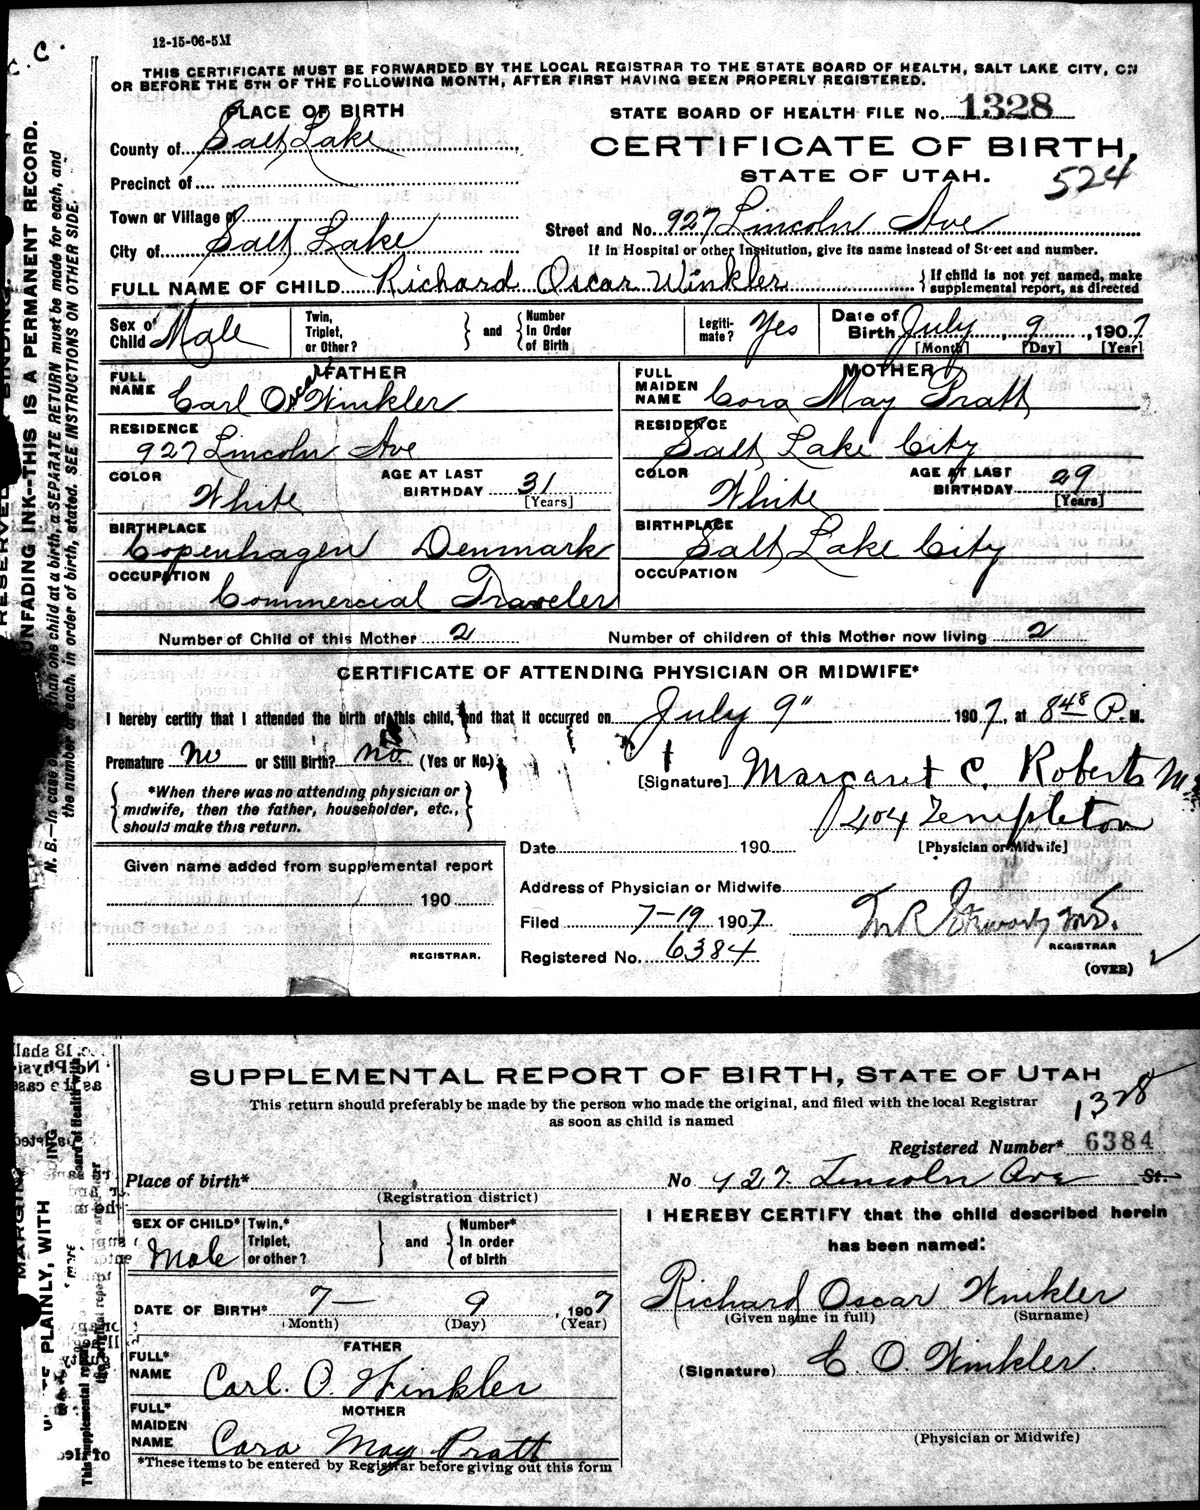 12-15-06-5M
C. C.
THIS CERTIFICATE MUST BE FORWARDED BY THE LOCAL REGISTRAR TO THE STATE BOARD OF HEALTH, SALT LAKE CITY, ON
OR BEFORE THE 5TH OF THE FOLLOWING MONTH, AFTER FIRST HAVING BEEN PROPERLY REGISTERED.
PLACE OF BIRTH
STATE BOARD OF HEALTH FILE No. 1328
County of Salt Lake
CERTIFICATE OF BIRTH,
Precinct of
STATE OF UTAH. 524
Town or Village of
Street and No. 927 Lincoln Ave
City of Salt Lake
If in Hospital or other Institution, give its name instead of Street and number.
FULL NAME OF CHILD Richard Oscar Winkler
If child is not yet named, make
supplemental report, as directed
Sex of Child Male
Twin, Triplet, or Other?
and
Number In Order of Birth
Legiti-mate? Yes
Date of Birth July 9, 1907
[Month] [Day] [Year]
FATHER
FULL NAME Carl Oscar Winkler
RESIDENCE
927 Lincoln Ave
COLOR White
AGE AT LAST BIRTHDAY 31
[Years]
BIRTHPLACE
Copenhagen Denmark
OCCUPATION
Commercial Traveler
MOTHER
FULL MAIDEN NAME Cora May Pratt
RESIDENCE
Salt Lake City
COLOR White
AGE AT LAST BIRTHDAY 29
[Years]
BIRTHPLACE
Salt Lake City
OCCUPATION
Number of Child of this Mother 2
Number of children of this Mother now living 2
CERTIFICATE OF ATTENDING PHYSICIAN OR MIDWIFE*
I hereby certify that I attended the birth of this child, and that it occurred on July 9" 1907, at 8 48 P. M.
Premature no or Still Birth? no (Yes or No.)
[Signature] Margaret C. Roberts M
*When there was no attending physician or
midwife, then the father, householder, etc.,
should make this return.
404 Templeton
[Physician or Midwife]
Date 190
Given name added from supplemental report
190
REGISTRAR.
Address of Physician or Midwife
Filed 7-19 1907
REGISTRAR
Registered No. 6384
(OVER)
RESERVED BINDING.
UNFADING INK—THIS IS A PERMANENT RECORD.
N. B.—In case of more than one child at a birth, a SEPARATE RETURN must be made for each, and
the number of each, in order of birth, stated. SEE INSTRUCTIONS ON OTHER SIDE.
SUPPLEMENTAL REPORT OF BIRTH, STATE OF UTAH
This return should preferably be made by the person who made the original, and filed with the local Registrar
as soon as child is named
1328
Registered Number* 6384
Place of birth*
(Registration district)
No 927 Lincoln Ave St.
SEX OF CHILD* Male
Twin,* Triplet, or other?
and
Number* In order of birth
DATE OF BIRTH* 7— 9, 1907
(Month) (Day) (Year)
FATHER
FULL* NAME Carl. O. Winkler
MOTHER
FULL* MAIDEN NAME Cora May Pratt
*These items to be entered by Registrar before giving out this form
I HEREBY CERTIFY that the child described herein
has been named:
Richard Oscar Winkler
(Given name in full) (Surname)
(Signature) C O. Winkler.
(Physician or Midwife)
PLAINLY, WITH
This supplemental report
the original report